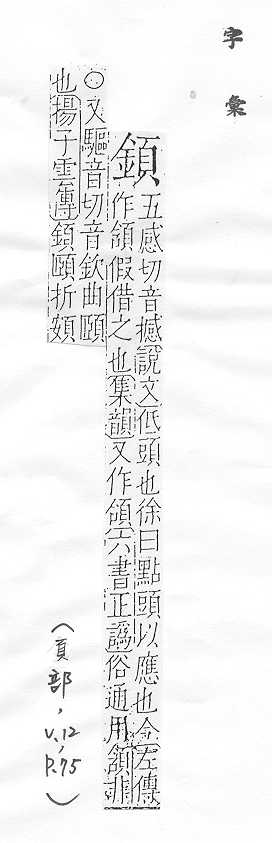 字彙
顉
五感切音撼說文低頭也徐曰點頭以應也今左傳
作頷假借之也集韻又作頜六書正譌俗通用頷非
○又驅音切音欽曲頤
也揚子雲傳顉頤折頞
(頁部, V.12, P.75)